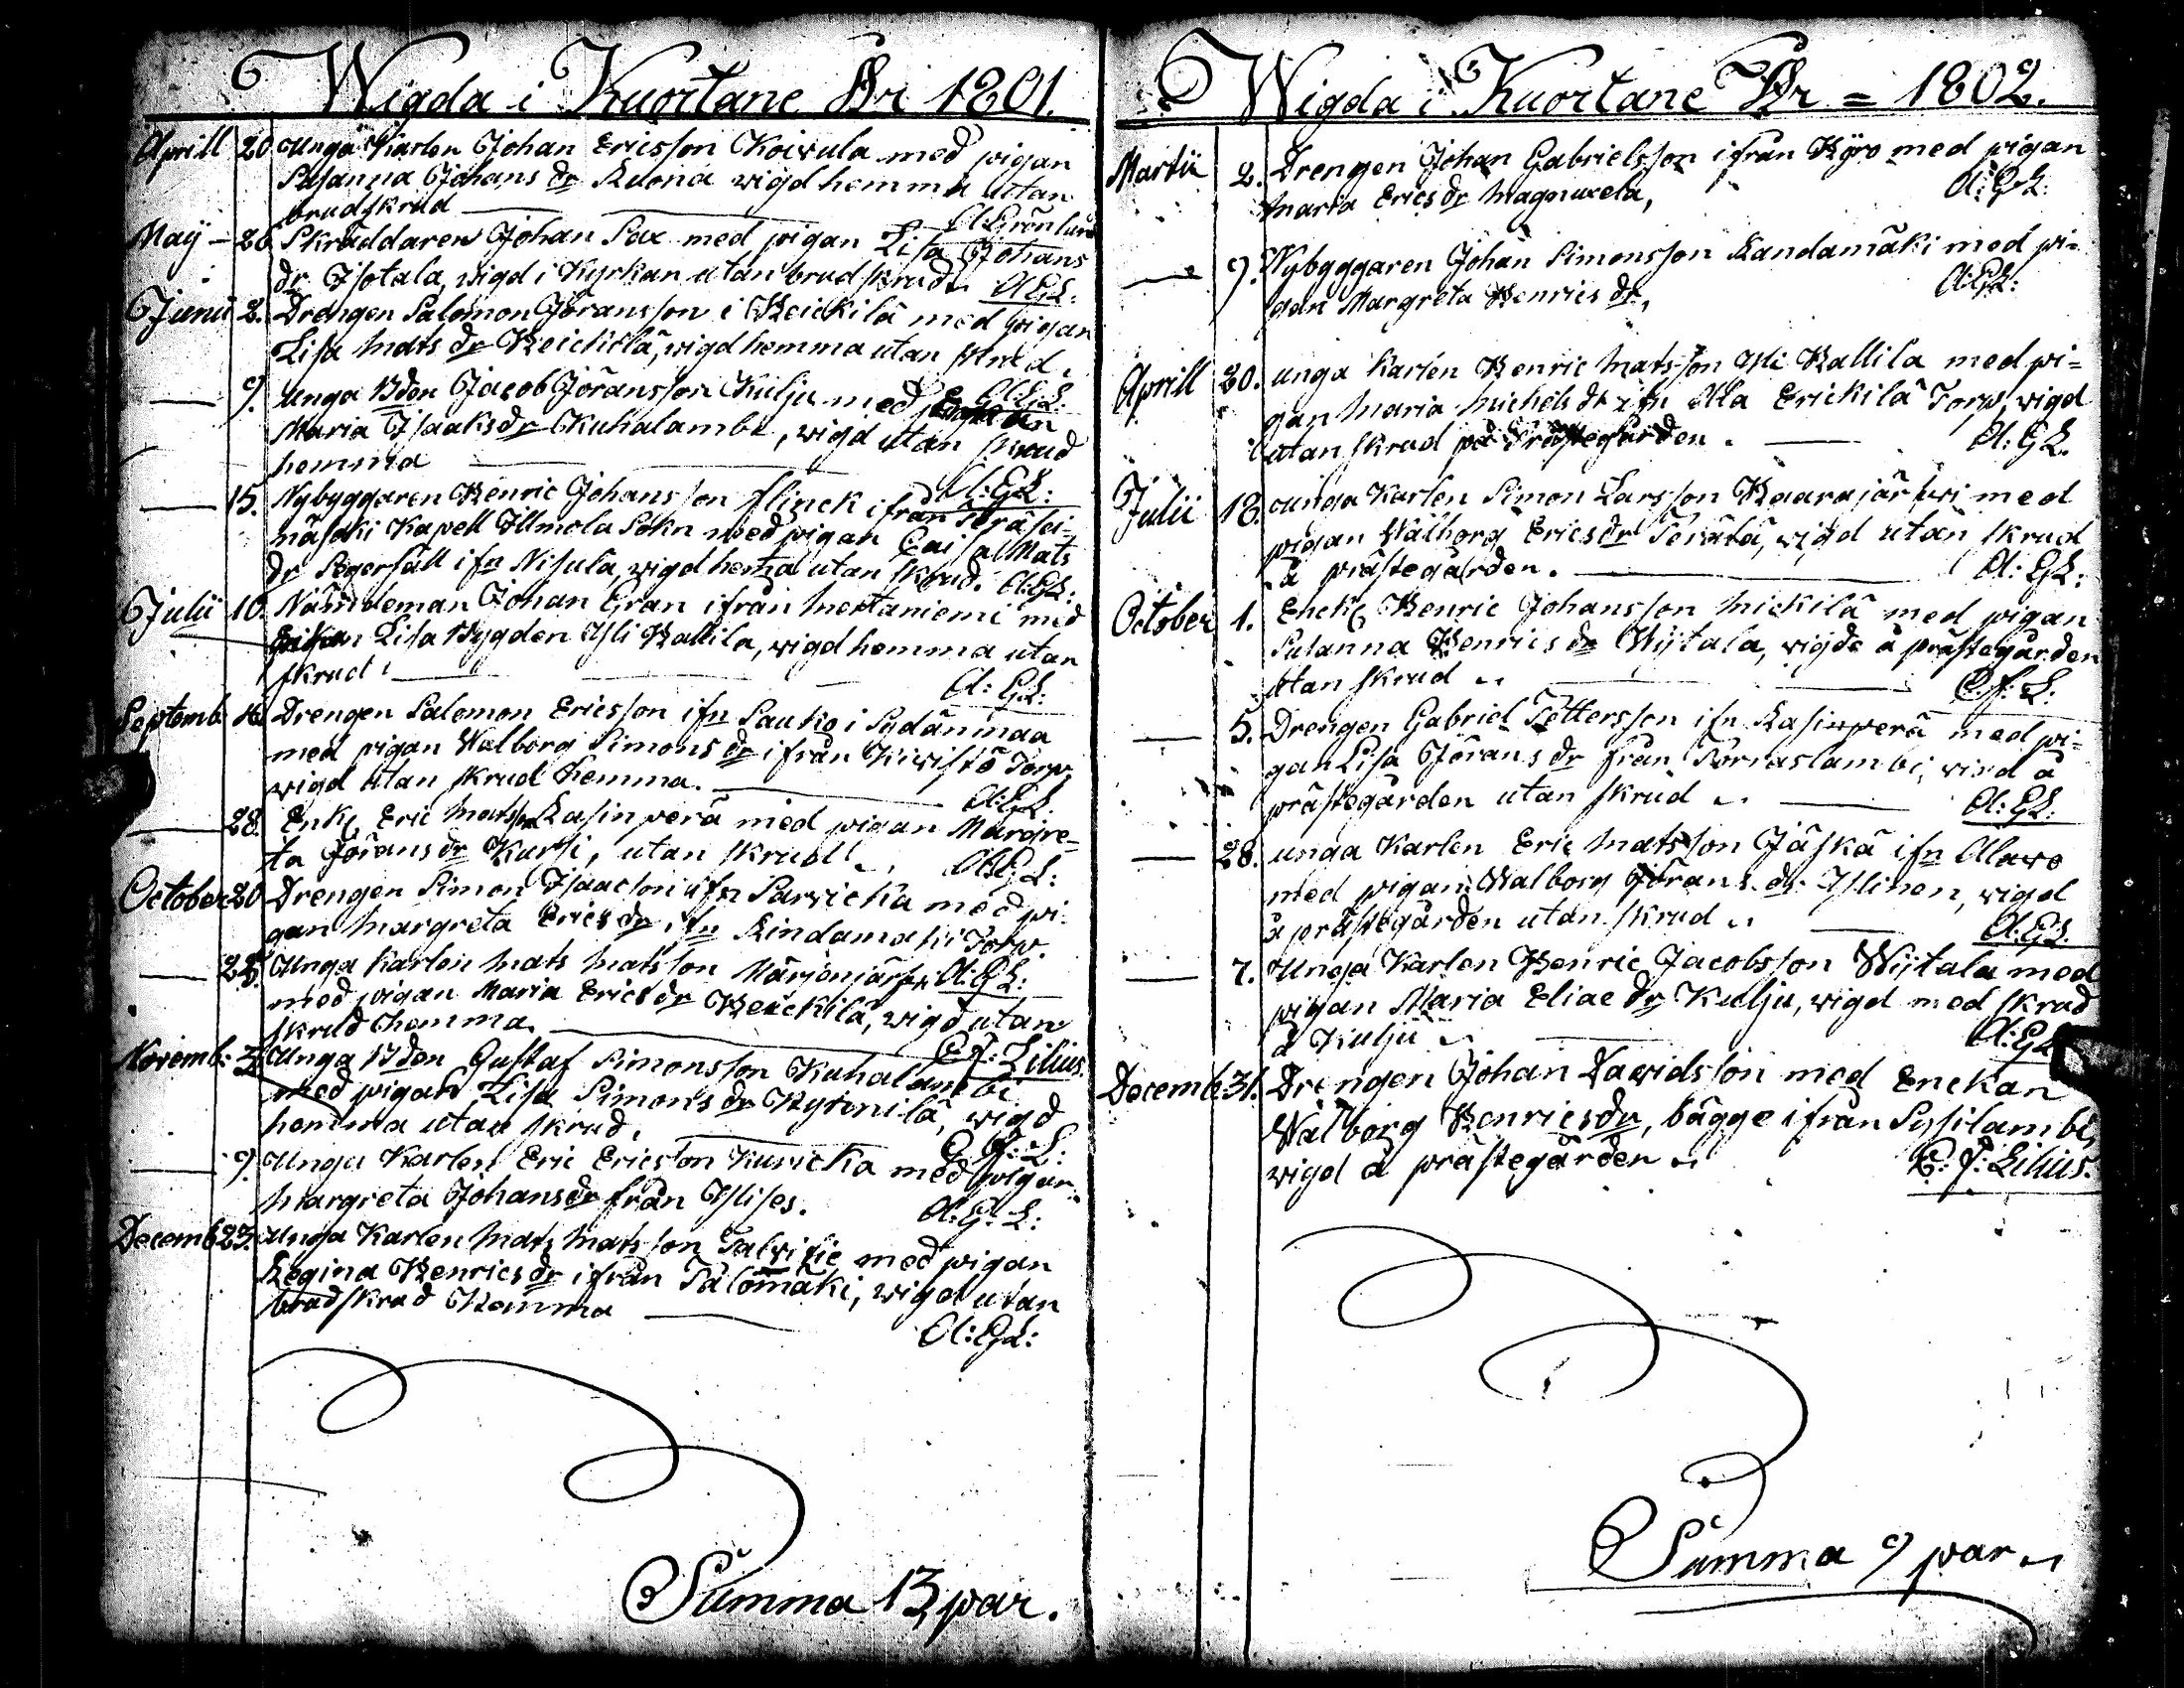 Wigda i Kuortane År 1801.
Aprill 20 Unga Karlen Johan Ericsson Koivula med pigan
Susanna Johans dr Ruona wigd hemma utan
brudskrud A:Grönlund
Maij – 26 Skräddaren Johan Sax med pigan Lisa Johans
dr Isotala, wigd i Kyrkan utan brudskrud. A:GL:
Junii 2. Drengen Salomon Jöransson i Heickilä med pigan
Lisa Mats dr Heickilä, wigd hemma utan skrud.
A:GL:
— 9. Unga Bden Jacob Jöransson Kulju med pigan
Maria Isaaks dr Kuhalambi, wigd utan skrud
hemma A:GL:
— 15. Nybyggaren Henric Johansson Flinck ifrån
mäski Kapell Illmola Sokn med pigan Caisa Mats
dr Segersäll ifn Nisula, wigd hema utan skrud. A:GL:
Julii 10. Nämdeman Johan Gran ifrån Mertaniemi med
Lisa Bygden Yli Kallila, wigd hemma utan
skrud A: GL:
Septemb: 16. Drengen Salomon Ericsson ifn Sauko i Sydänmaa
med pigan Walborg Simons dr ifrån Kiwistö Torp
wigd utan skrud hemma. A:GL.
— 28. Enkl Eric Matsson Kasinperä med pigan Margre-
ta Jörans dr Kursi, utan skrud A:GL:
October 20 Drengen Simon Isaacson ifn Sarvicka med pi-
gan Margreta Erics dr ifn Rindamaki Torp.
A:GL:
— 28. Unga Karlen Mats Matsson
med pigan Maria Erics dr Heickilä, wigd utan
skrud hemma. C.F: Lilius.
Novemb: 3. Unga Bden Gustaf Simonsson Kuhalambi
med pigan Lisa Simons dr Kyrönilä, wigd
hemma utan skrud. C.F:L:
— 9. Unga Karlen Eric Ericsson Kuricka med pigan
Margreta Johans dr från Ylises. A:G:L:
Decemb 27. Unga Karlen Mats Matsson Talvitie med pigan
Regina Henrics dr ifrån Salomäki, wigd utan
brudskrud Hemma
A:GL:
Summa 13 par.
Wigda i Kuortane År = 1802.
Martii 2. Drengen Johan Gabrielsson ifrån Kyro med pigan
Maria Erics dr Magnuxela, A:GL:
— 9. Nybyggaren Johan Simonsson Randamäki med pi-
gan Margreta Henrics dr, A:GL:
Aprill 20. unga Karlen Henric Matsson Yli Kallila med pi-
gan Maria Michels dr ifn Ala Erickilä Torp, wigd
utan skrud på Prästegården. A:GL.
Julii 18. unga Karlen Simon Larsson Kaarajärwi med
pigan Walborg Erics dr Perälä, wigd utan skrud
å prästegården. A: GL:
October 1. Enckl Henric Johansson Mickilä med pigan
Susanna Henrics dr Wijtala, wigde å prästegården
utan skrud C.F: L:
— 5. Drengen Gabriel Pettersson ifn Kasinperä med pi-
gan Lisa Jörans dr från Porraslambi, wigd å
prästegården utan skrud A:GL:
— 28. unga Karlen Eric Matsson Jäskä ifn Alavo
med pigan Walborg Jörans dr Ylinen, wigd
å prästegården utan skrud A:GL.
— 7. Unga Karlen Henric Jacobsson Wijtala med
pigan Maria Eliae dr Kulju, wigd med skrud
å Kulju A:GL
Decemb. 31. Drengen Johan Davidsson med Enckan
Walborg Henrics dr, bägge ifrån Sysilambi,
wigd å prästegården C: F: Lilius.
Summa 9 par